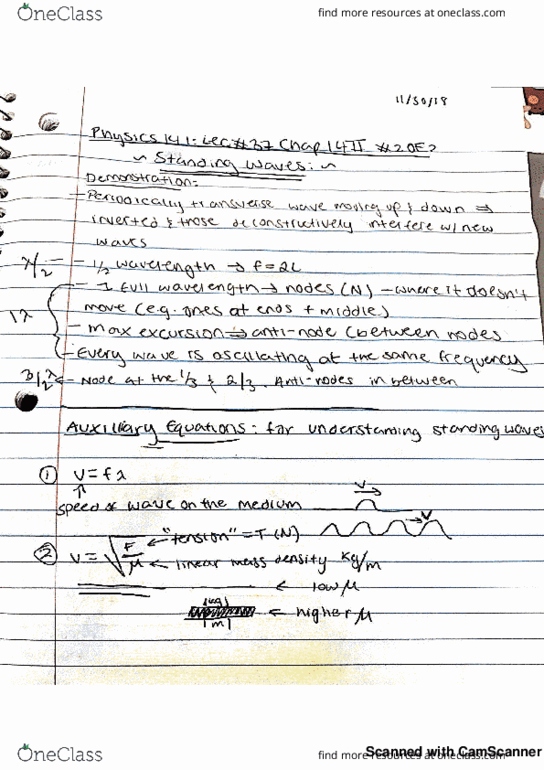 OneClass
find more resources at oneclass.com
11/30/18
Physics 141: Lec #37 Chap 14 II
~ Standing Waves: ~
Demonstration:
- Periodically transverse wave moving up & down ⇒
inverted & those deconstructively interfere w/ new
waves
λ/2 — - 1/2 wavelength → f = 2L
1λ - 1 full wavelength → nodes (N) - where it doesn't
move (e.g. ones at ends + middle)
- max excursion → anti-node (between nodes
- Every wave is oscillating at the same frequency
3/2 λ ← - Node at the 1/3 & 2/3. Anti-nodes in between
Auxillary Equations: for understanding standing waves
① v = fλ
↑
speed of wave on the medium
v
v
② v = √F/μ ← "tension" = T (N)
← linear mass density kg/m
← low μ
← higher μ
1m
OneClass
find more resources at oneclass.com
Scanned with CamScanner